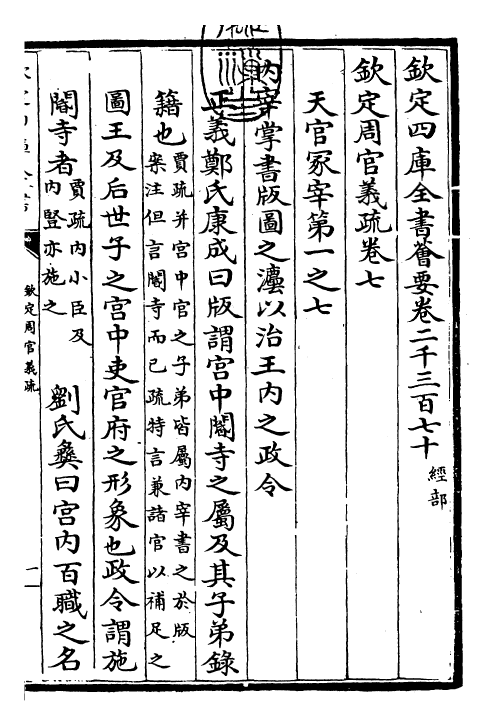 欽定四庫全書薈要卷二千三百七十 經部
欽定周官義疏卷七
天官冢宰第一之七
內宰掌書版圖之灋以治王內之政令
正義鄭氏康成曰版謂宮中閽寺之屬及其子弟錄
籍也賈疏并宮中官之子弟皆屬內宰書之於版
案注但言閽寺而已疏特言兼諸官以補足之
圖王及后世子之宮中吏官府之形象也政令謂施
閽寺者賈疏內小臣及
內豎亦施之
劉氏彝曰宮內百職之名
欽定周官義疏
一